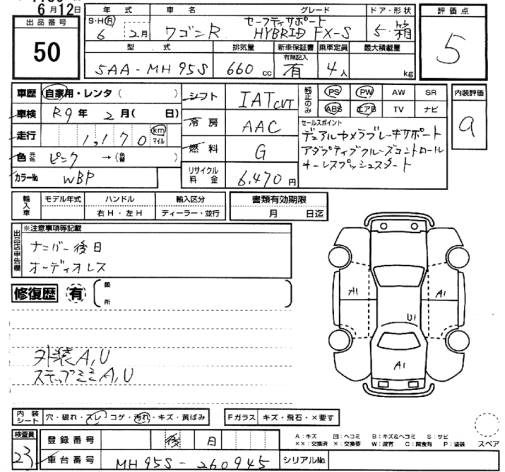 6月12日
出品番号
50
年式 車名 グレード ドア・形状 評価点
S・H・R 6年 2月 ワゴンR セーフティサポート HYBRID FX-S 5・箱 5
型式 排気量 新車保証書 有限記入 乗車定員 最大積載量
5AA-MH95S 660cc 有 4人 kg
車歴 自家用・レンタ( )
車検 R9年 2月( 日)
走行 1,170 km マイル
色 元色 ピンク →(色替 )
カラーNo. WBP
シフト IAT CVT
冷房 AAC
燃料 G
リサイクル料金 6,470円
純正のみ PS PW AW SR
ABS エアB TV ナビ
内装評価
a
セールスポイント
デュアルカメラブレーキサポート
アダプティブクルーズコントロール
キーレスプッシュスタート
輸入車 モデル年式 ハンドル 輸入区分
右H・左H ディーラー・並行
書類有効期限
月 日迄
出品店申告欄
※注意事項等記載
ナンバー後日
オーディオレス
修復歴 有 箇所
外装A,U
ステップミミA,U
A1
A1
U1
A1
内装シート 穴・破れ・スレ・コゲ・汚れ・キズ・黄ばみ
Fガラス キズ・飛石・×要す
検査員
23
登録番号 後日
車台番号 MH95S-260945
シリアルNo.
A:キズ 凹:ヘコミ B:キズ&ヘコミ S:サビ
××:交換済 ×:交換要 W:波打 C:腐食 P:塗装
スペア